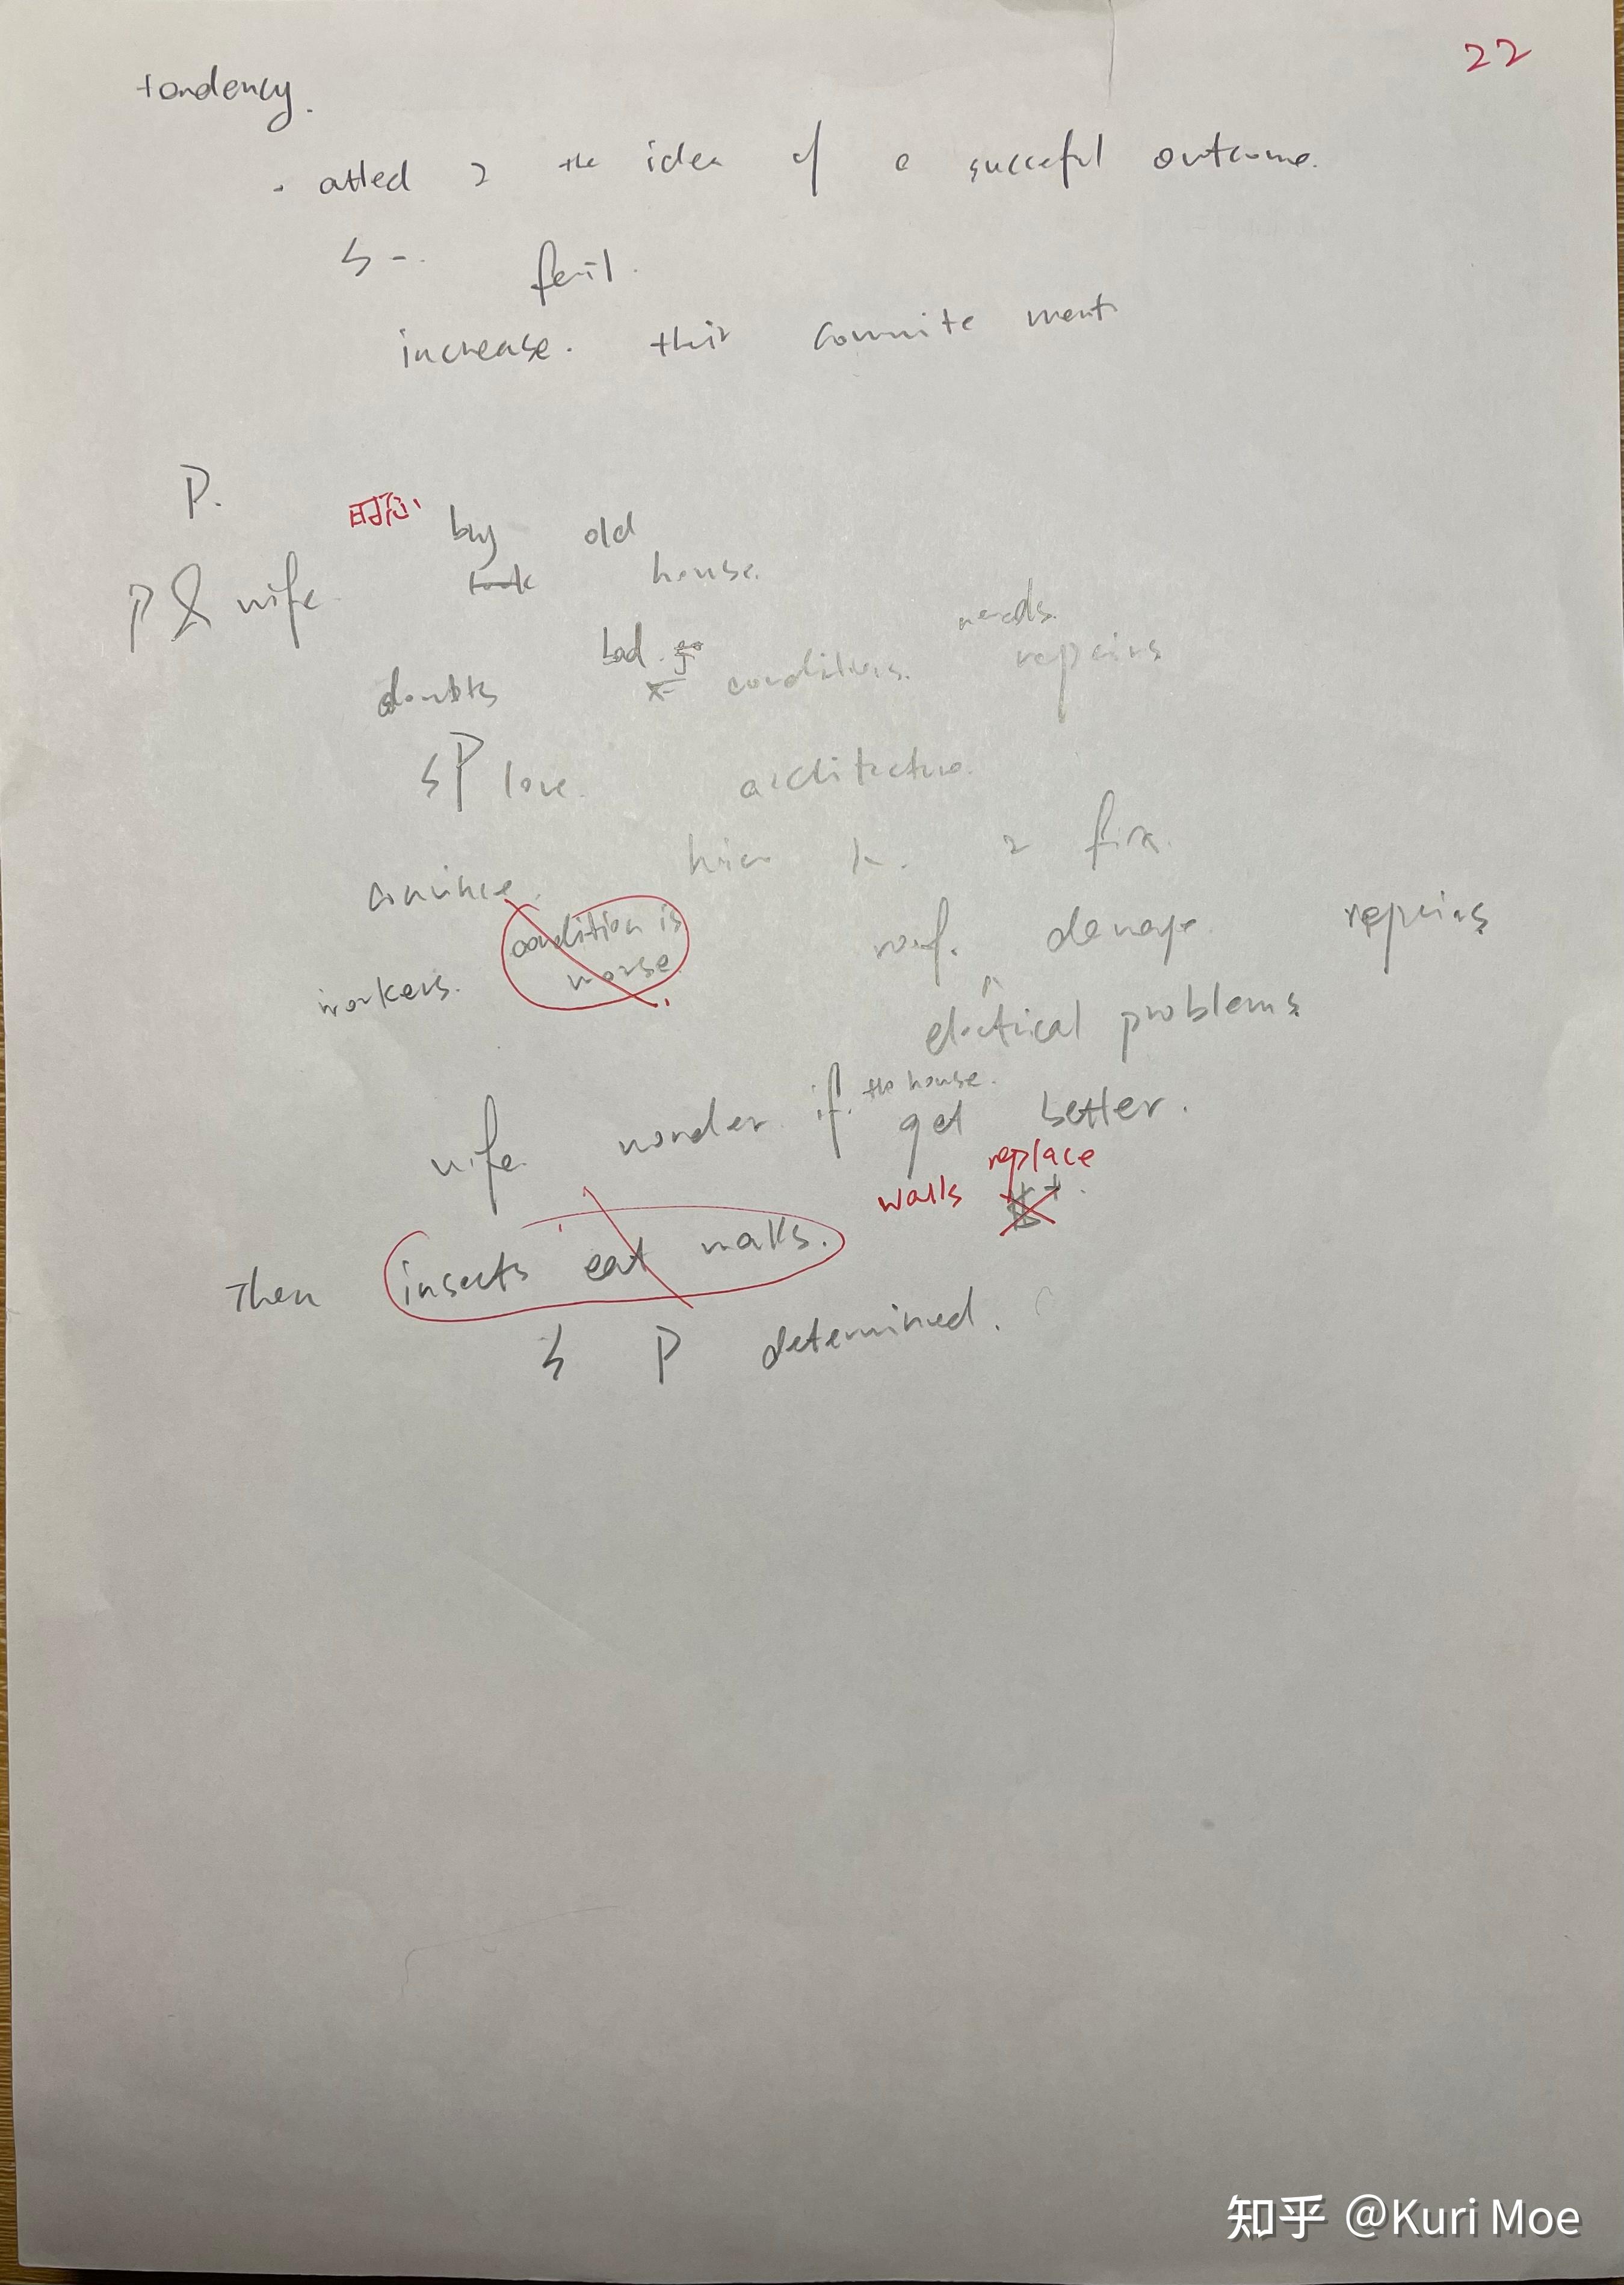 22
tendency.
· atted 2 the idea of a succeful outcome.
fail.
increase. their commitement
P.
时态
buy old
P & wife took house.
needs.
doubts bad conditions. repairs
P love. architecture.
2 fix.
convince.
condition is
worse
roof. damage. repairs
workers.
electrical problems
wife wonder if the house.
get better.
replace
walls $+.
Then insects eat walls.
P determined.
知乎 @Kuri Moe